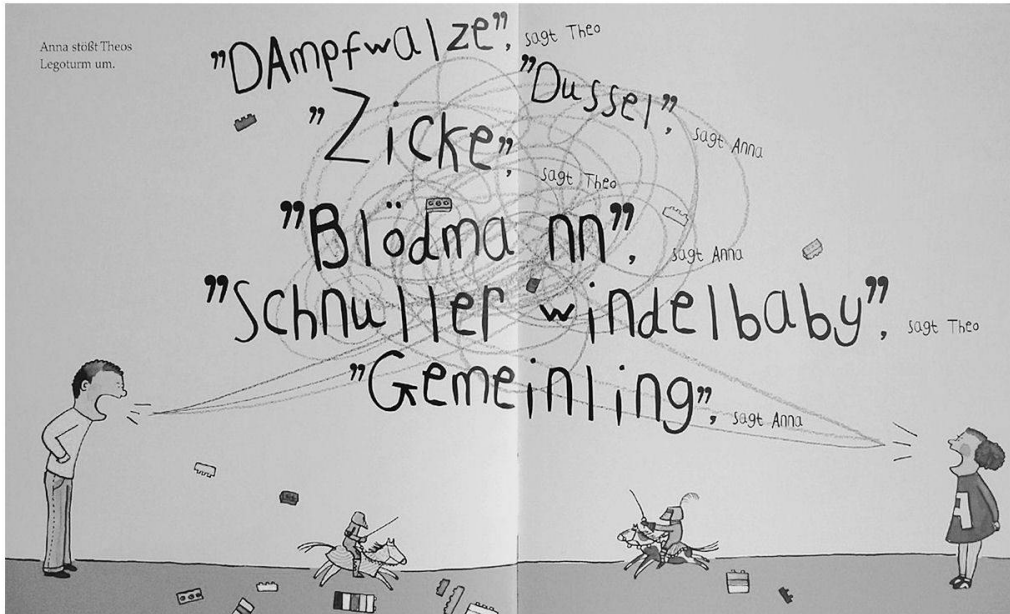 Anna stößt Theos
Legoturm um.
"DAmpfwalze", sagt Theo
"Dussel", sagt Anna
"Zicke", sagt Theo
"Blödmann", sagt Anna
"Schnuller windelbaby", sagt Theo
"Gemeinling", sagt Anna